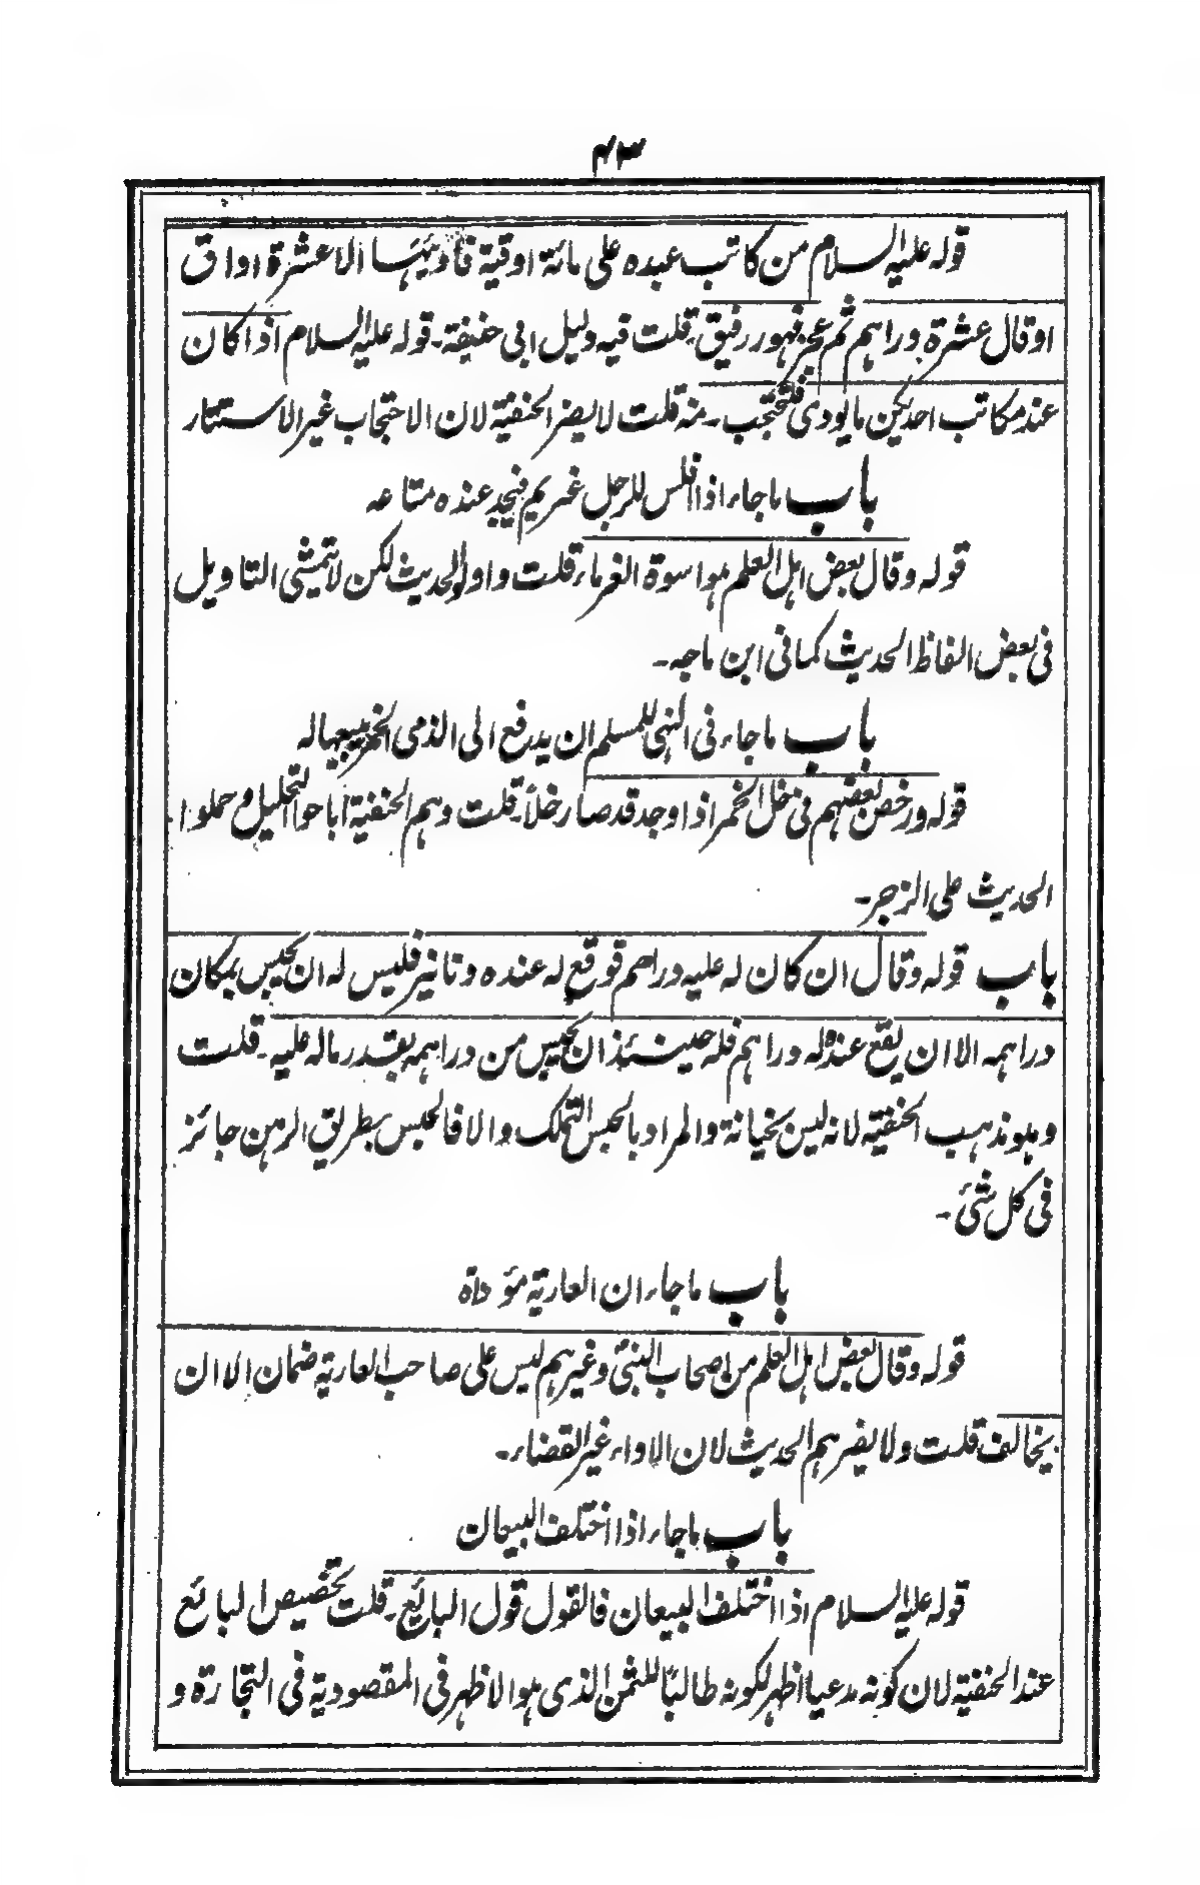 ۴۳
قوله عليه السلام من كاتب عبده على مائة اوقية فاديٰها الا عشرة اواق
اوقال عشرة دراهم ثم عجز فهو رقيق۔ قلت فيه دليل ابى حنيفة۔ قوله عليه السلام اذا كان
عند مكاتب احدىكن ما يودى فلتحتجب۔ منه قلت لا يضر الحنفية لان الاحتجاب غير الاستتار
باب ما جاء اذا افلس للرجل غريم فيجد عنده متاعه
قوله وقال بعض اهل العلم هو اسوة الغرماء قلت واولوا الحديث لكن لا يتمشى التاويل
فى بعض الفاظ الحديث كما فى ابن ماجه۔
باب ما جاء فى النهى للمسلم ان يدفع الى الذمى الخمر يبيعها له
قوله ورخص بعضهم فى خل الخمر اذا وجد قد صار خلاً۔ قلت وهم الحنفية اباحوا التخليل وحملوا
الحديث على الزجر۔
باب قوله وقال ان كان له عليه دراهم فوقع له عنده دنانير فليس له ان يحبس بمكان
دراهمه الا ان يقع عنده له دراهم فله حينئذ ان يحبس من دراهمه بقدر ماله عليه۔ قلت
وهو مذهب الحنفية لانه ليس بخيانة والمراد بالحبس التملك والا فالحبس بطريق الرهن جائز
فى كل شئ۔
باب ما جاء ان العارية مؤداة
قوله وقال بعض اهل العلم من اصحاب النبىؐ وغيرهم ليس على صاحب العارية ضمان الا ان
يخالف قلت ولا يضرهم الحديث لان الاداء غير القضاء۔
باب ما جاء اذا اختلف البيعان
قوله عليه السلام اذا اختلف البيعان فالقول قول البائع۔ قلت تخصيص البائع
عند الحنفية لان كونه مدعيا اظهر لكونه طالبًا للثمن الذى هو الاظهر فى المقصودية فى التجارة و